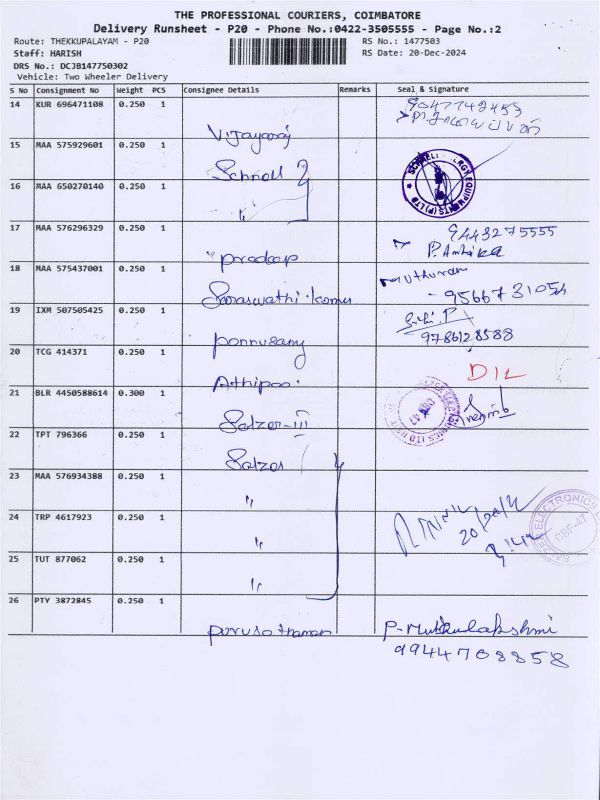 THE PROFESSIONAL COURIERS, COIMBATORE
Delivery Runsheet - P20 - Phone No.:0422-3505555 - Page No.:2
Route: THEKKUPALAYAM - P20 RS No.: 1477503
Staff: HARISH RS Date: 20-Dec-2024
DRS No.: DCJB147750302
Vehicle: Two Wheeler Delivery
S No Consignment No Weight PCS Consignee Details Remarks Seal & Signature
14 KUR 696471108 0.250 1 Vijayaraj
15 MAA 575929601 0.250 1 Schnell
16 MAA 650270140 0.250 1 "
SCHNELL ENERGY EQUIPMENTS (P) LTD
17 MAA 576296329 0.250 1 pradeep 9443275555
P. Ambika
18 MAA 575437001 0.250 1 Saraswathi.kumar
19 IXM 507505425 0.250 1 ponnusamy 9786128588
20 TCG 414371 0.250 1 DIL
21 BLR 4450588614 0.300 1 Salzer-III
22 TPT 796366 0.250 1 Salzer
23 MAA 576934388 0.250 1 "
24 TRP 4617923 0.250 1 "
25 TUT 877062 0.250 1 "
26 PTY 3872845 0.250 1 purusothaman P-Muthulakshmi
9944708858